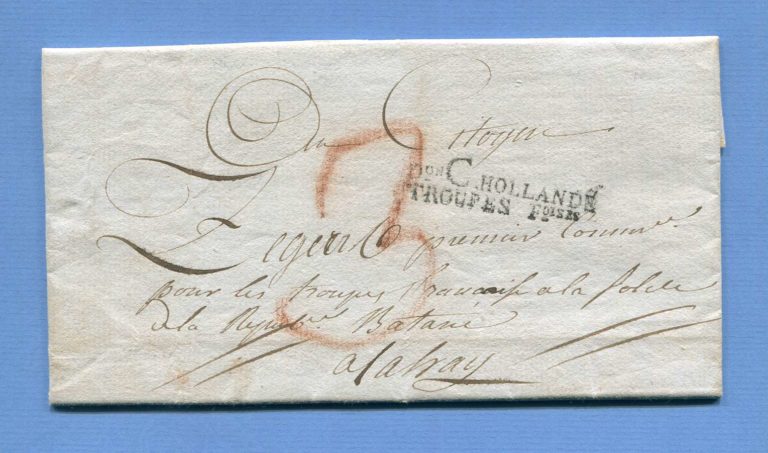 Au Citoyen
3
ION C. HOLLANDE
TROUPES FOISES
premier Commre
pour les troupes francaise a la solde
de la Repube Batave
a la hay